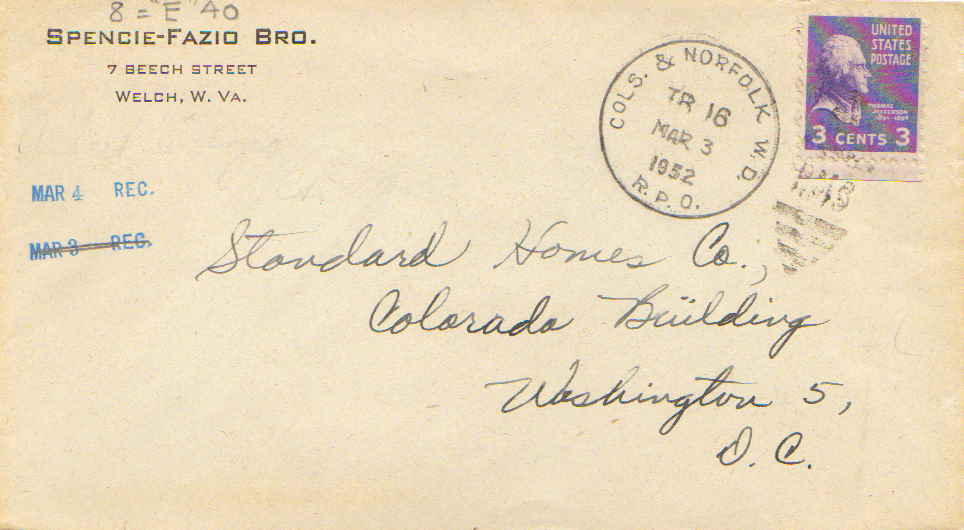 8 = "E" 40
SPENCIE-FAZIO BRO.
7 BEECH STREET
WELCH, W. VA.
COLS. & NORFOLK W.D.
TR 16
MAR 3
1952
R.P.O.
UNITED
STATES
POSTAGE
THOMAS
JEFFERSON
3 CENTS 3
MAR 4 REC.
MAR 3 REC.
Standard Homes Co.,
Colorado Building
Washington 5,
D.C.